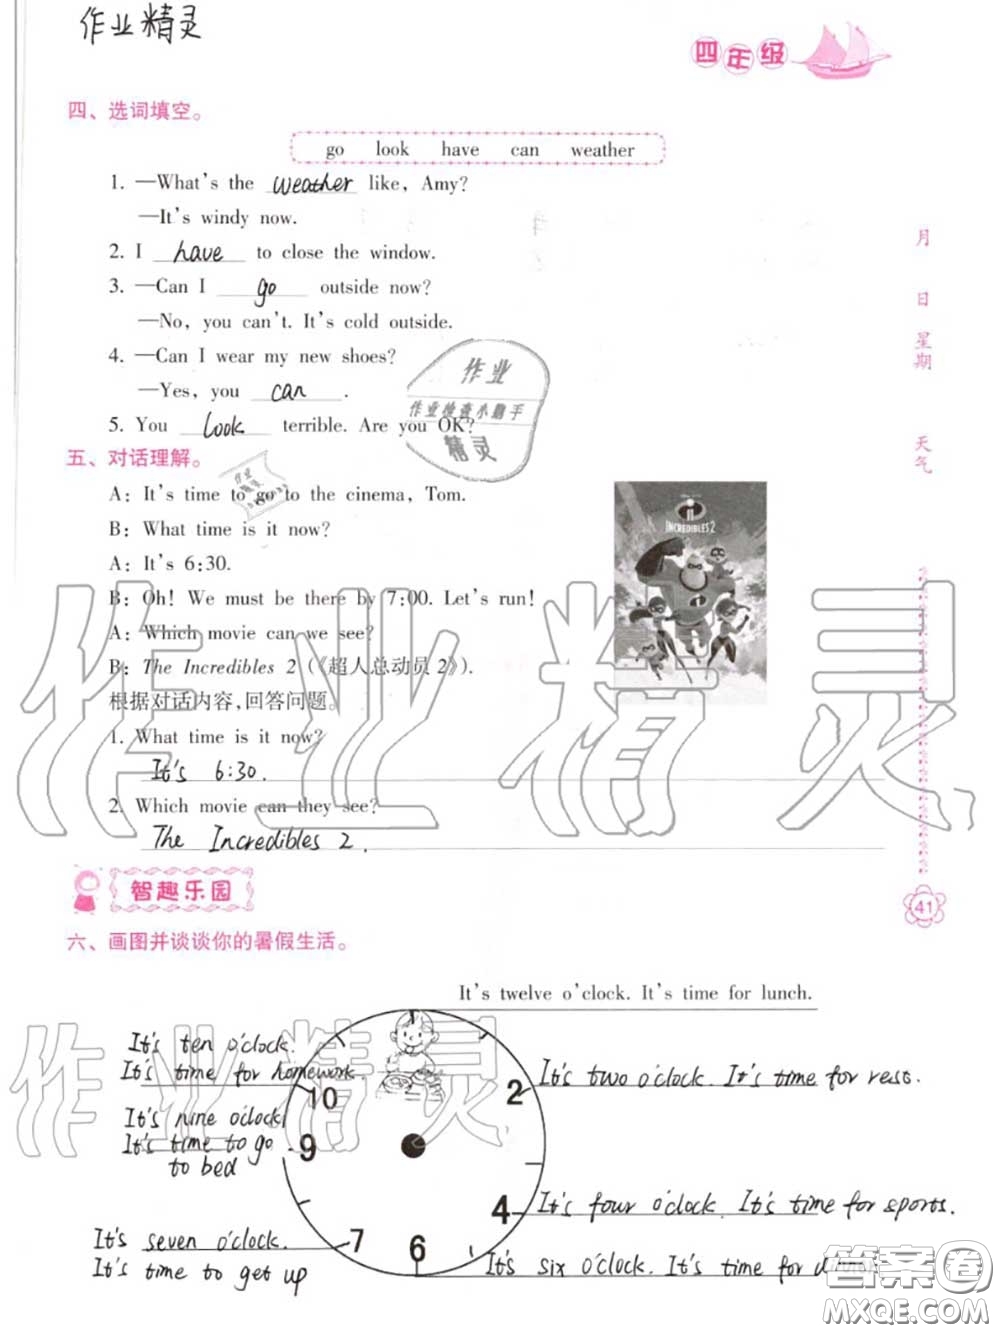 作业精灵
四年级
四、选词填空。
go look have can weather
1. —What's the weather like, Amy?
—It's windy now.
2. I have to close the window.
3. —Can I go outside now?
—No, you can't. It's cold outside.
4. —Can I wear my new shoes?
—Yes, you can .
5. You look terrible. Are you OK?
作业
作业检查小助手
精灵
五、对话理解。
A: It's time to go to the cinema, Tom.
B: What time is it now?
A: It's 6:30.
B: Oh! We must be there by 7:00. Let's run!
A: Which movie can we see?
B: The Incredibles 2 (《超人总动员2》).
INCREDIBLES 2
根据对话内容,回答问题。
1. What time is it now?
It's 6:30.
2. Which movie can they see?
The Incredibles 2.
月
日
星期
天气
作业精灵
41
智趣乐园
六、画图并谈谈你的暑假生活。
It's twelve o'clock. It's time for lunch.
作业精灵
It's ten o'clock.
It's time for homework.
10
2
It's two o'clock. It's time for rest.
It's nine o'clock
It's time to go
to bed
9
4
It's four o'clock. It's time for sports.
It's seven o'clock.
It's time to get up
7
6
It's six o'clock. It's time for dinner
答案圈
MXQE.COM